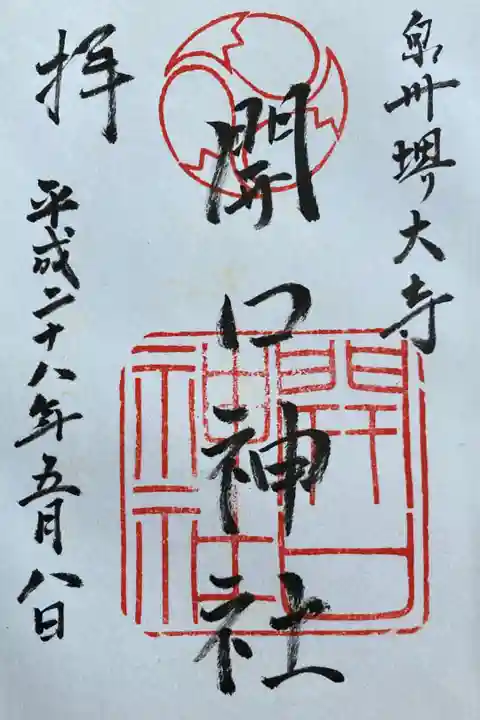 泉州堺大寺
開口神社
開口
神社
拝
平成二十八年五月八日